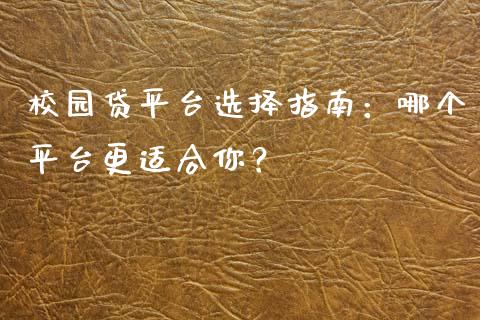 校园贷平台选择指南：哪个
平台更适合你？